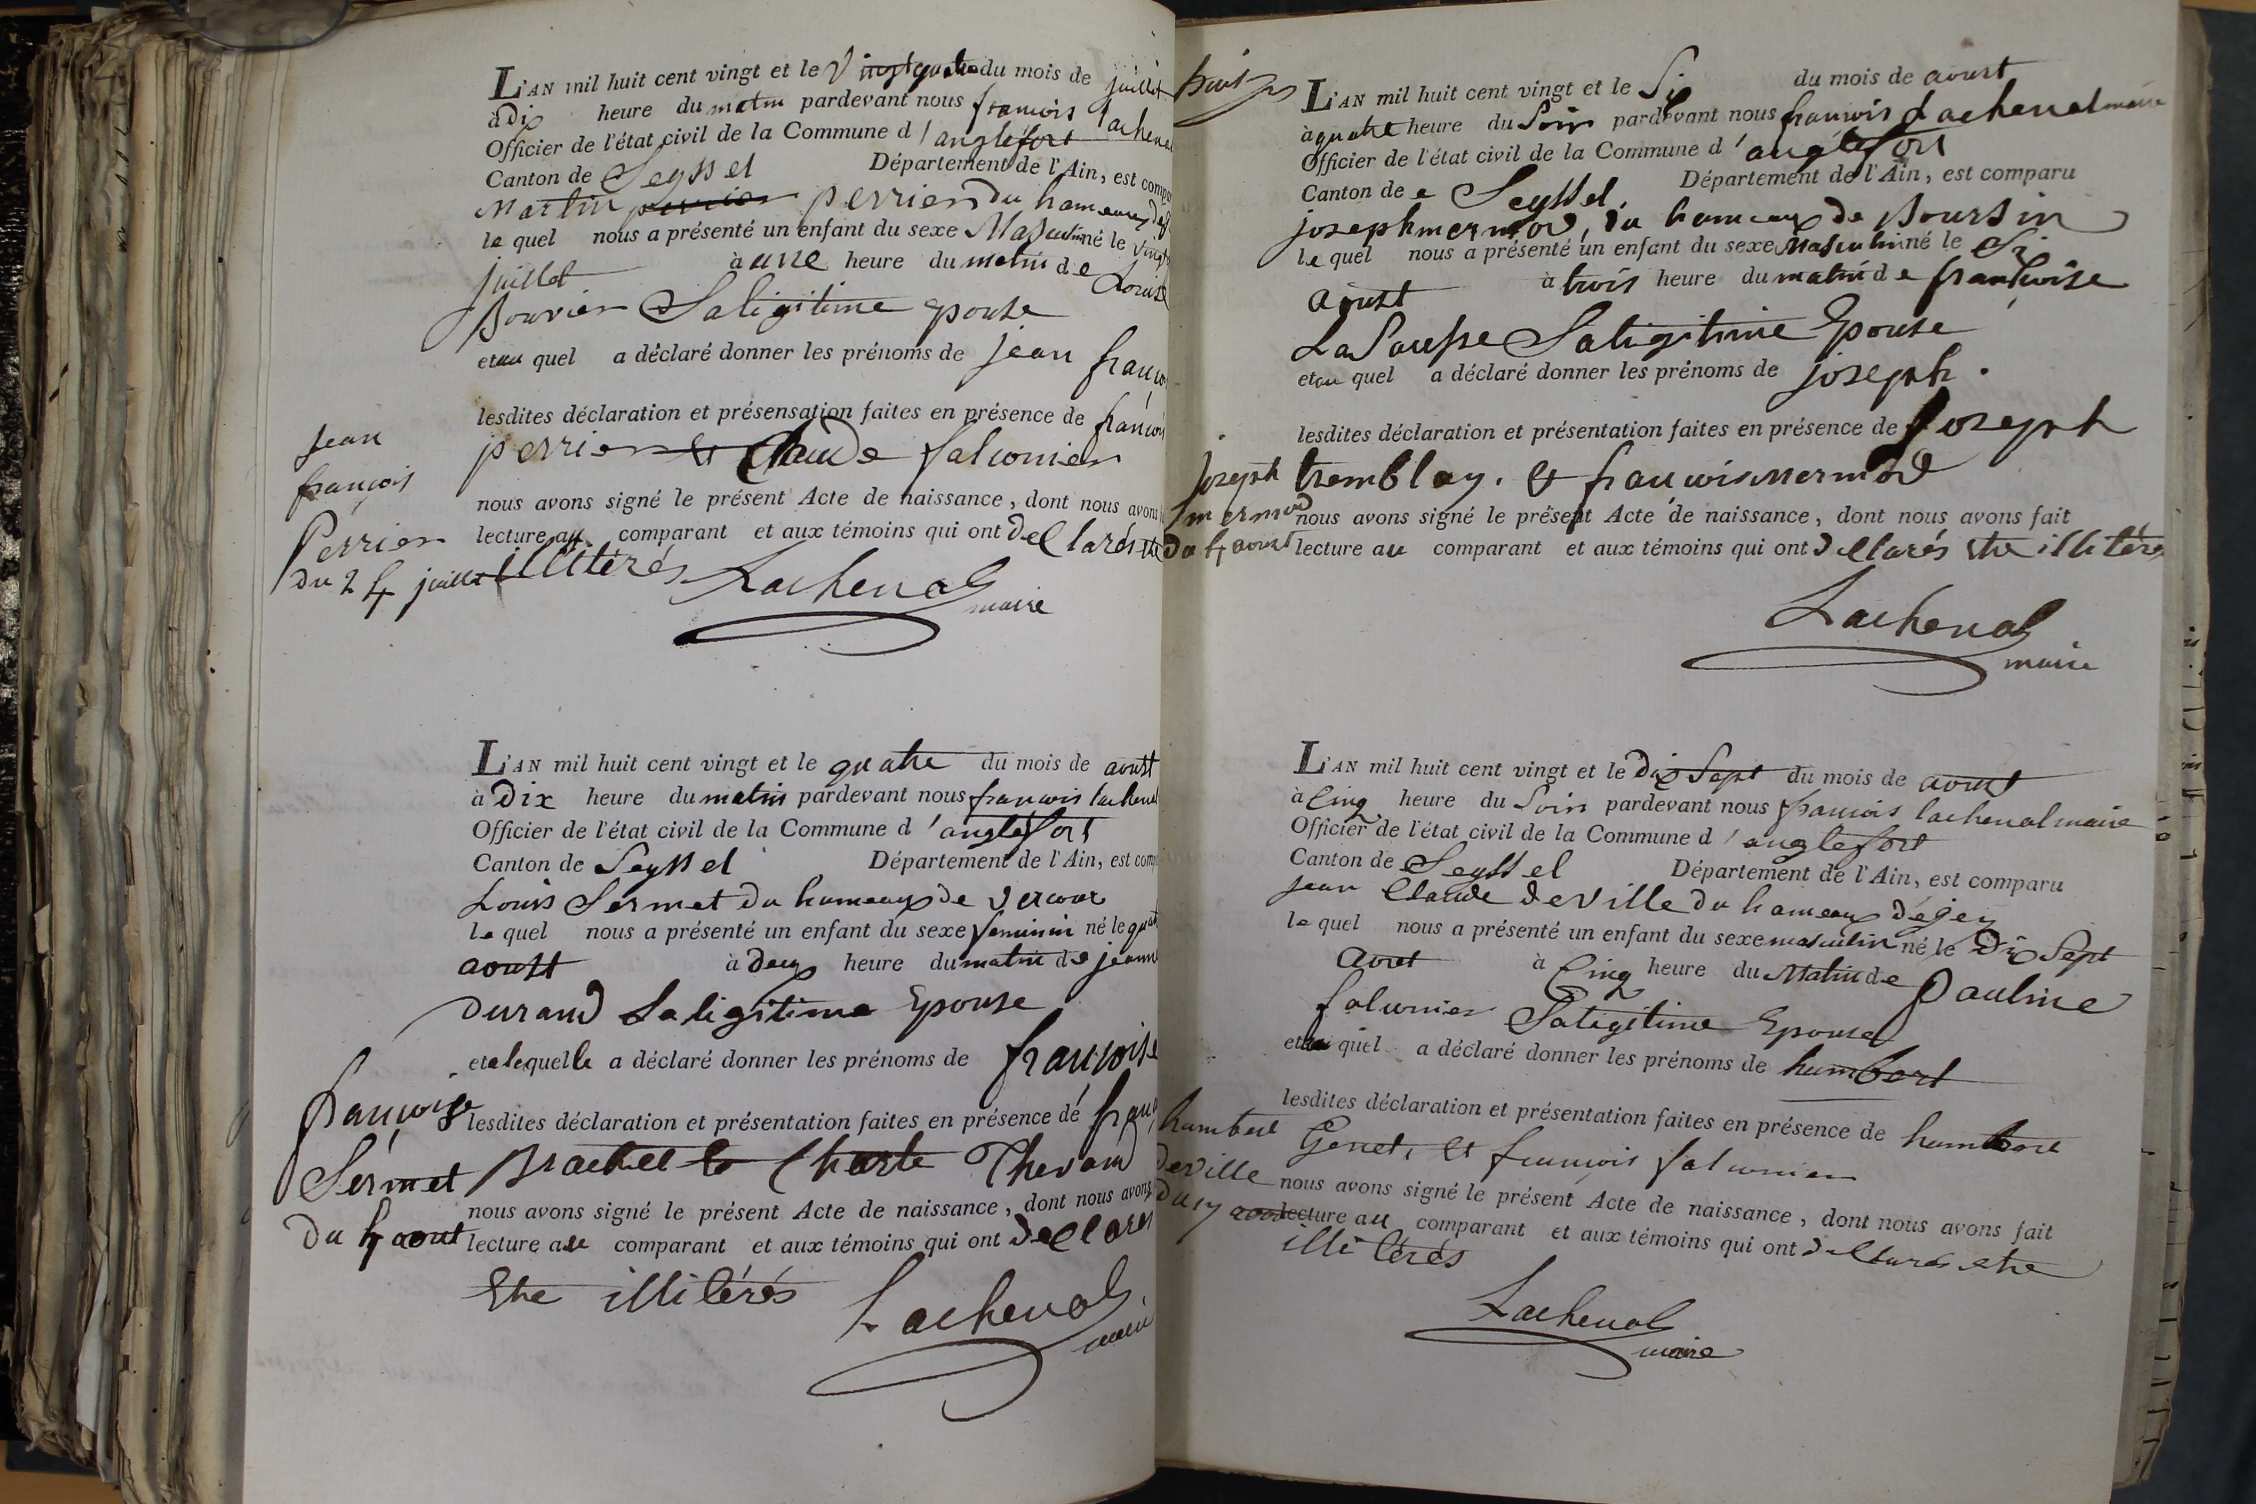 L'AN mil huit cent vingt et le Vingtquatre du mois de juillet
à Dix heure du matin pardevant nous francois lachenal
Officier de l'état civil de la Commune d'anglefort
Canton de Seyssel Département de l'Ain, est comparu
Martin perrier du hameaux
le quel nous a présenté un enfant du sexe Masculin né le vingt
juillet à une heure du matin de Louise
Bouvier Saligitime epouse
et au quel a déclaré donner les prénoms de jean françois
lesdites déclaration et présensation faites en présence de françois
perrier et Claude falconier
nous avons signé le présent Acte de naissance, dont nous avons
lecture au comparant et aux témoins qui ont declarés etre
illitérés Lachenal
maire
jean
françois
Perrier
du 24 juillet
L'AN mil huit cent vingt et le quatre du mois de aoust
à Dix heure du matin pardevant nous francois lachenal
Officier de l'état civil de la Commune d'anglefort
Canton de Seyssel Département de l'Ain, est comp
Louis Sermet du hameaux de vercour
le quel nous a présenté un enfant du sexe feminin né le quat
aoust à deux heure du matin de jeanne
durand Saligitime Epouse
et a lequelle a déclaré donner les prénoms de françoise
lesdites déclaration et présentation faites en présence de franç
Brachet et Charle Thevand
nous avons signé le présent Acte de naissance, dont nous avons
lecture au comparant et aux témoins qui ont declares
Etre illitérés Lachenal
maire
françoise
Sermet
du 4 aout
huit
L'AN mil huit cent vingt et le Six du mois de aoust
à quatre heure du Soir pardevant nous francois Lachenal maire
Officier de l'état civil de la Commune d'anglefort
Canton de Seyssel Département de l'Ain, est comparu
joseph mermod, du hameaux de Boursin
le quel nous a présenté un enfant du sexe Masculin né le Six
aoust à trois heure du matin de francoise
La Saupe Saligitime Epouse
et au quel a déclaré donner les prénoms de joseph.
lesdites déclaration et présentation faites en présence de Joseph
tremblay. & francois mermod
nous avons signé le présent Acte de naissance, dont nous avons fait
lecture au comparant et aux témoins qui ont declarés etre illitérés
Lachenal
maire
joseph
mermod
du 4 aoust
L'AN mil huit cent vingt et le dix Sept du mois de aoust
à Cinq heure du Soir pardevant nous francois lachenal maire
Officier de l'état civil de la Commune d'anglefort
Canton de Seyssel Département de l'Ain, est comparu
jean Claude deville du hameaux dégex
le quel nous a présenté un enfant du sexe masculin né le Dix Sept
aout à Cinq heure du Matin de Pauline
falconier Saligitime Epouse
et au quel a déclaré donner les prénoms de humbert
lesdites déclaration et présentation faites en présence de humbert
Genet, et françois falconier
nous avons signé le présent Acte de naissance, dont nous avons fait
lecture au comparant et aux témoins qui ont declarés etre
illitérés
Lachenal
maire
humbert
deville
du 17 aoust